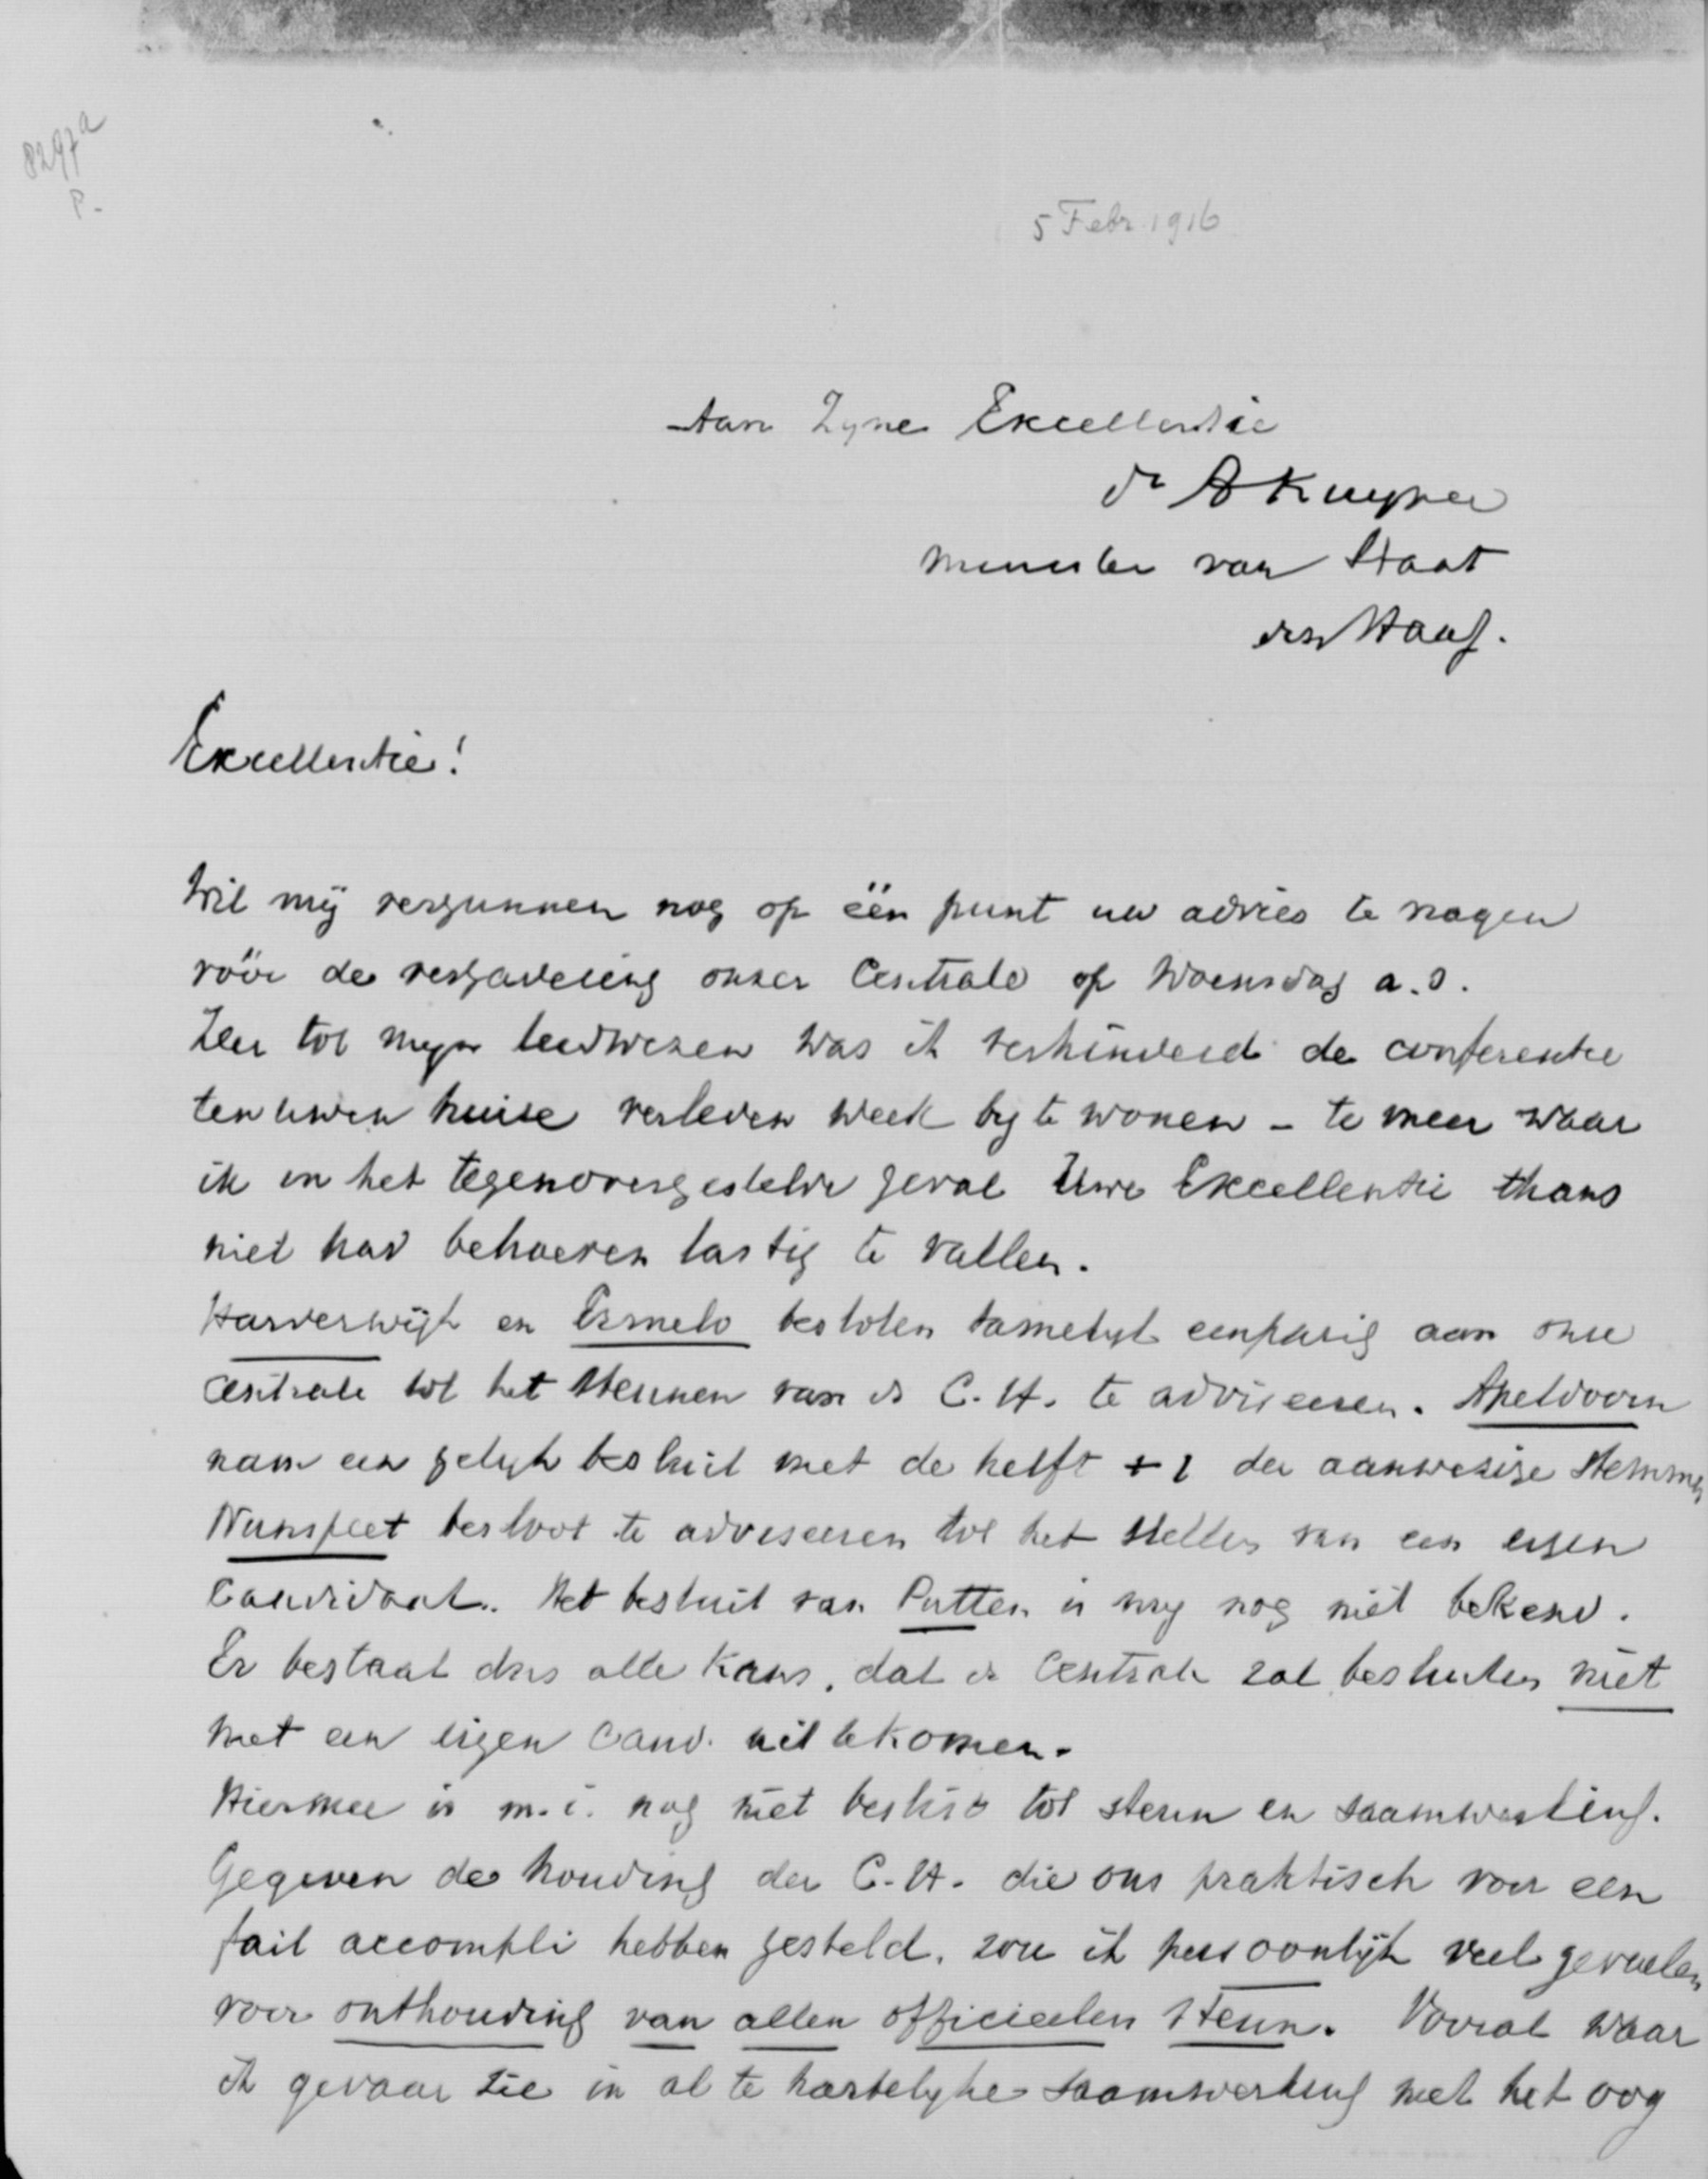 8297a
P.
5 Febr. 1916
Aan Zyne Excellentie
dr A Kuyper
Minister van Staat
den Haag.
Excellentie!
Wil mij vergunnen nog op één punt uw advies te vragen
vóór de vergadering onzer Centrale op Woensdag a.s.
Zeer tot myn leedwezen was ik verhinderd de conferentie
ten uwen huise verleden week by te wonen - te meer waar
ik in het tegenovergestelde geval Uwe Excellentie thans
niet had behoeven lastig te vallen.
Harderwijk en Ermelo besloten tamelyk eenparig aan onze
Centrale tot het steunen van de C.H. te adviseeren. Apeldoorn
nam een gelyk besluit met de helft + 1 der aanwezige stemmen
Nunspeet besloot te adviseeren tot het stellen van een eigen
Candidaat. Het besluit van Putten is my nog niet bekend.
Er bestaat dus alle kans, dat de Centrale zal besluiten niet
met een eigen Cand. uit te komen.
Hiermee is m.i. nog niet beslist tot steun en saamwerking.
Gegeven de houding der C.H. die ons praktisch voor een
fait accompli hebben gesteld, zou ik persoonlijk veel gevoelen
voor onthouding van allen officieelen steun. Vooral waar
ik gevaar zie in al te hartelyke saamwerking met het oog